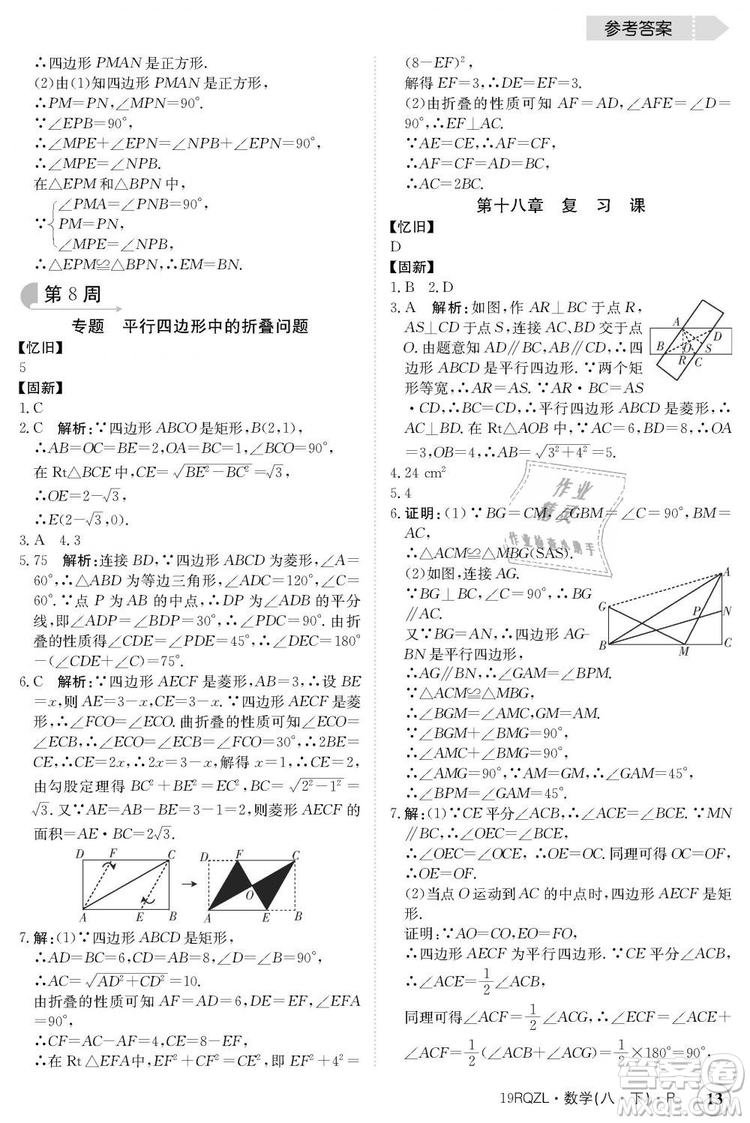 参考答案
∴四边形 PMAN 是正方形.
(2)由(1)知四边形 PMAN 是正方形,
∴PM=PN,∠MPN=90°.
∵∠EPB=90°,
∴∠MPE+∠EPN=∠NPB+∠EPN=90°,
∴∠MPE=∠NPB.
在△EPM和△BPN中,
∵{∠PMA=∠PNB=90°,
PM=PN,
∠MPE=∠NPB,
∴△EPM≌△BPN,∴EM=BN.
第 8 周
专题 平行四边形中的折叠问题
【忆旧】
5
【固新】
1.C
2.C 解析:∵四边形 ABCO 是矩形,B(2,1),
∴AB=OC=BE=2,OA=BC=1,∠BCE=90°,
在 Rt△BCE 中,CE=√(BE²-BC²)=√3,
∴OE=2-√3,
∴E(2-√3,0).
3.A 4.3
5.75 解析:连接 BD,∵四边形 ABCD 为菱形,∠A=
60°,∴△ABD 为等边三角形,∠ADC=120°,∠C=
60°.∵点 P 为 AB 的中点,∴DP 为∠ADB 的平分
线,即∠ADP=∠BDP=30°,∴∠PDC=90°.由折
叠的性质得∠CDE=∠PDE=45°,∴∠DEC=180°
-(∠CDE+∠C)=75°.
6.C 解析:∵四边形 AECF 是菱形,AB=3,∴设 BE
=x,则 AE=3-x,CE=3-x.∵四边形 AECF 是菱
形,∴∠FCO=∠ECO.由折叠的性质可知∠ECO=
∠ECB,∴∠ECO=∠ECB=∠FCO=30°,∴2BE=
CE,∴CE=2x,∴2x=3-x,解得 x=1,∴CE=2.
由勾股定理得 BC²+BE²=EC²,∴BC=√(2²-1²)=
√3.又∵AE=AB-BE=3-1=2,则菱形 AECF 的
面积=AE·BC=2√3.
D F C
A E B
D F C
O
A E B
7.解:(1)∵四边形 ABCD 是矩形,
∴AD=BC=6,CD=AB=8,∠D=∠B=90°,
∴AC=√(AD²+CD²)=10.
由折叠的性质可知 AF=AD=6,DE=EF,∠EFA
=90°,
∴CF=AC-AF=4,CE=CD-DE=8-EF,
∴在 Rt△EFA中,EF²+CF²=CE²,即 EF²+4²=
(8-EF)²,
解得EF=3,∴DE=EF=3.
(2)由折叠的性质可知 AF=AD,∠AFE=∠D=
90°,∴EF⊥AC.
∵AE=CE,∴AF=CF,
∴AF=CF=AD=BC,
∴AC=2BC.
第十八章 复 习 课
【忆旧】
D
【固新】
1.B 2.D
3.A 解析:如图,作 AR⊥BC 于点 R,
AS⊥CD 于点 S,连接 AC,BD 交于点
O.由题意知 AD∥BC,AB∥CD,∴四边
形 ABCD 是平行四边形.∵两个矩
形等宽,∴AR=AS.∵AR·BC=AS
·CD,∴BC=CD,∴平行四边形 ABCD 是菱形,
∴AC⊥BD.在 Rt△AOB 中,∵OA=3,OB=4,
∴AB=√(3²+4²)=5.
A D
B O
R C S
4.24 cm²
5.4
6.证明:(1)∵BG=CM,∠GBM=∠C=90°,BM=
AC,
∴△ACM≌△MBG(SAS).
(2)如图,连接 AG.
∵BG⊥BC,∠C=90°,
∴BG∥AC.
又∵BG=AN,∴四边形 AG-
BN是平行四边形,
∴AG∥BN,∴∠GAM=∠BPM.
∵△ACM≌△MBG,
∴∠BGM=∠AMC,AM=GM.
∵∠BGM+∠GMB=90°,
∴∠AMC+∠GMB=90°,
∴∠AMG=90°,∴∠GAM=45°,
∴∠BPM=45°.
A
G
P N
B M C
7.解:(1)∵CE 平分∠ACB,∴∠ACE=∠BCE.∵MN
∥BC,∴∠OEC=∠BCE,
∴∠OEC=∠ACE,∴OE=OC.同理可得 OC=OF,
∴OE=OF.
(2)当点 O 运动到 AC 的中点时,四边形 AECF 是矩
形.
证明:∵AO=CO,OE=OF,
∴四边形 AECF 为平行四边形.∵CE 平分∠ACB,
∴∠ACE=1/2∠ACB,
同理可得∠ACF=1/2∠ACG,∴∠ECF=∠ACE+
∠ACF=1/2(∠ACB+∠ACG)=1/2×180°=90°,
作业
精灵
作业检查小助手
19RQZL·数学(八·下)·R 13